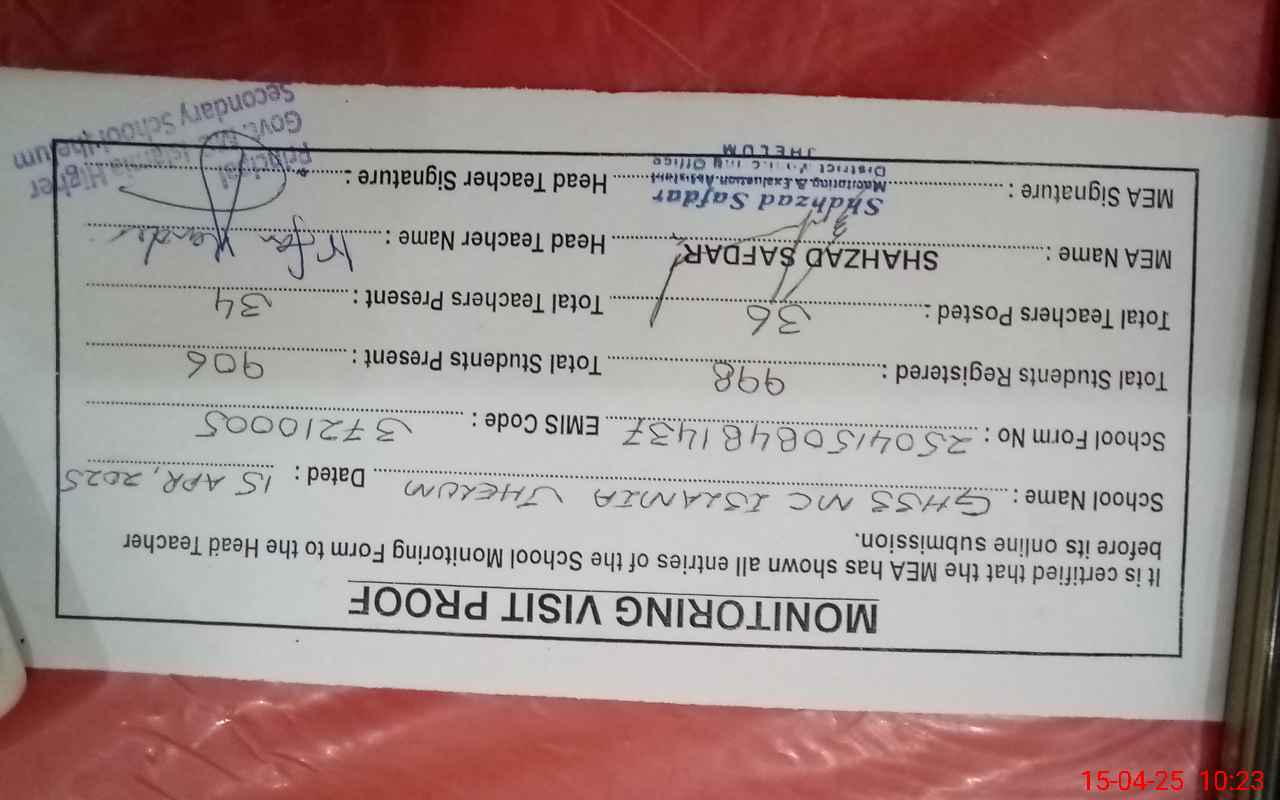 MONITORING VISIT PROOF
It is certified that the MEA has shown all entries of the School Monitoring Form to the Head Teacher
before its online submission.
School Name : GHSS MC ISLAMIA JHELUM Dated : 15 APR, 2025
School Form No : 25041508481437 EMIS Code : 37210005
Total Students Registered : 998 Total Students Present : 906
Total Teachers Posted : 36 Total Teachers Present : 34
MEA Name : SHAHZAD SAFDAR Head Teacher Name : Irfan
MEA Signature : Head Teacher Signature :
Shahzad Safdar
Monitoring & Evaluation Assistant
District Office
JHELUM
Principal
Govt. Islamia Higher
Secondary School Jhelum
15-04-25 10:23